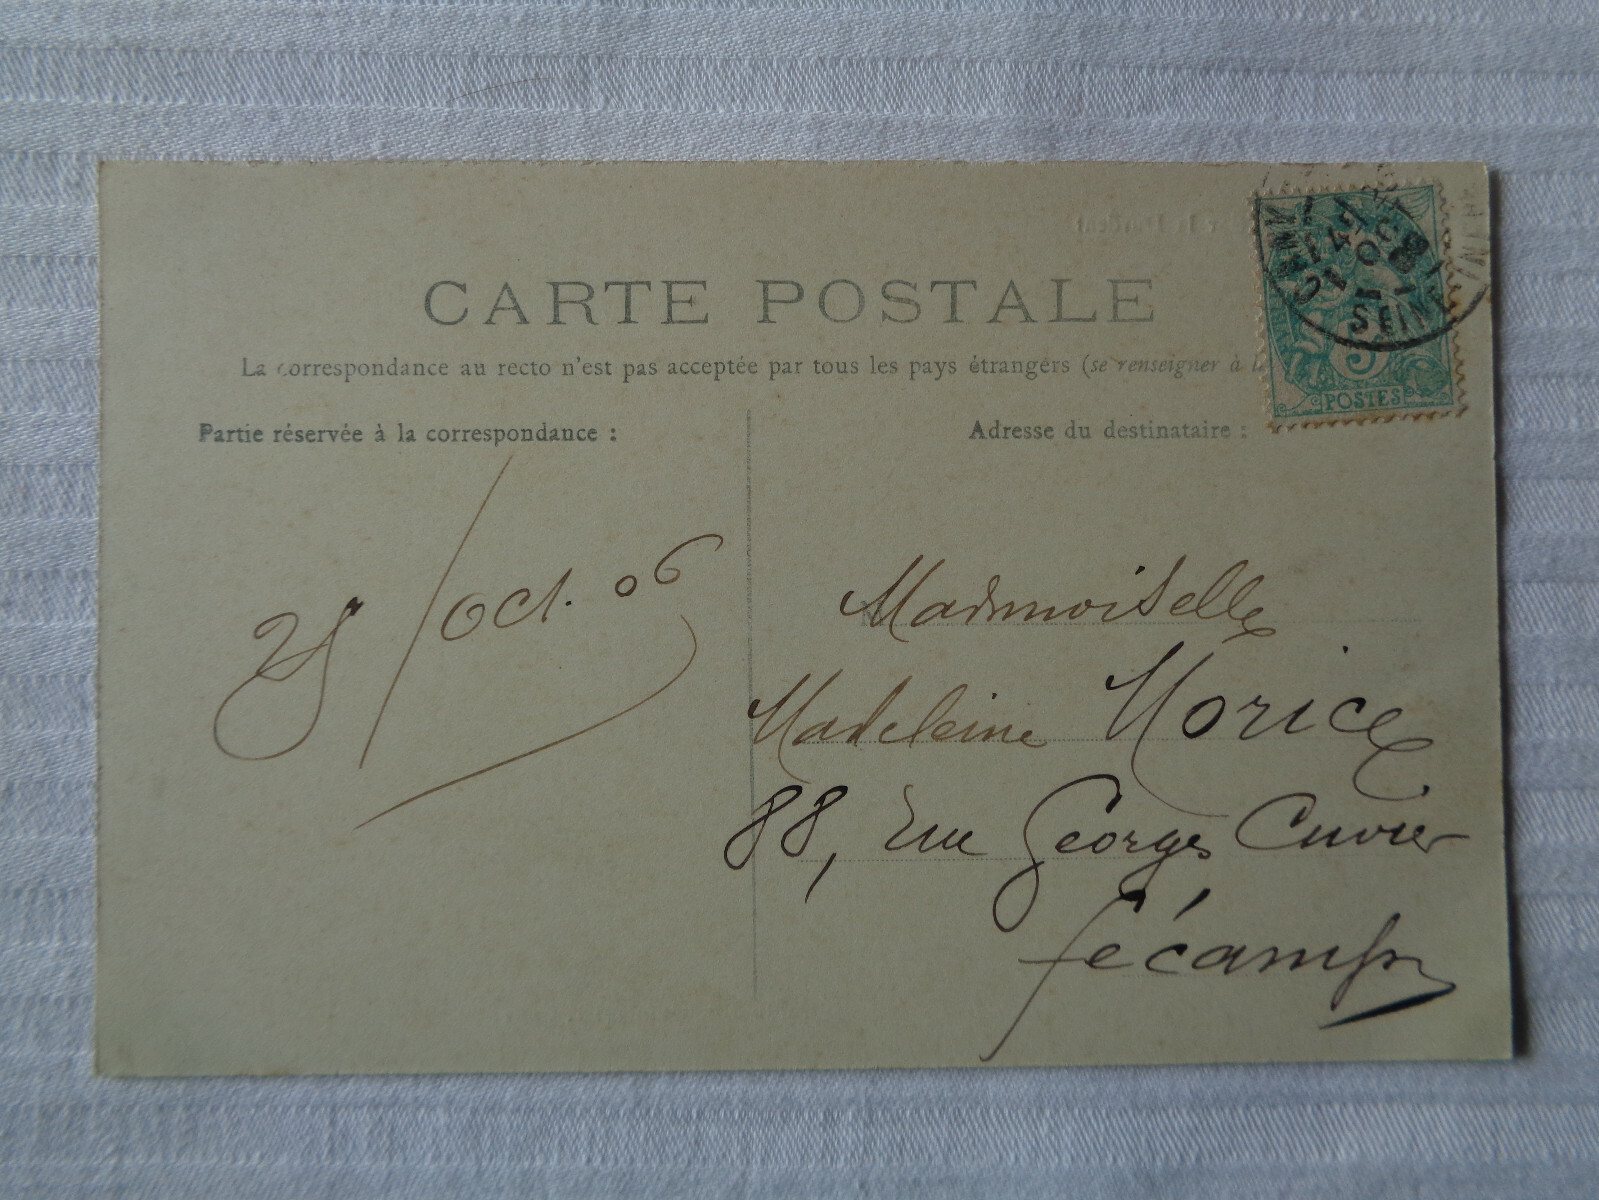 CARTE POSTALE
La correspondance au recto n'est pas acceptée par tous les pays étrangers (se renseigner à
Partie réservée à la correspondance :
Adresse du destinataire :
Oct. 06
Mademoiselle
Madeleine Morice
88, rue Georges Cuvier
Fécamp
POSTES
5
SEINE